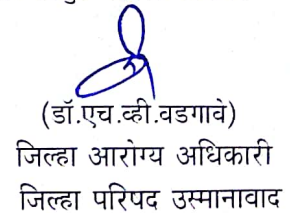 (डॉ.एच.व्ही.वडगावे)
जिल्हा आरोग्य अधिकारी
जिल्हा परिषद उस्मानाबाद